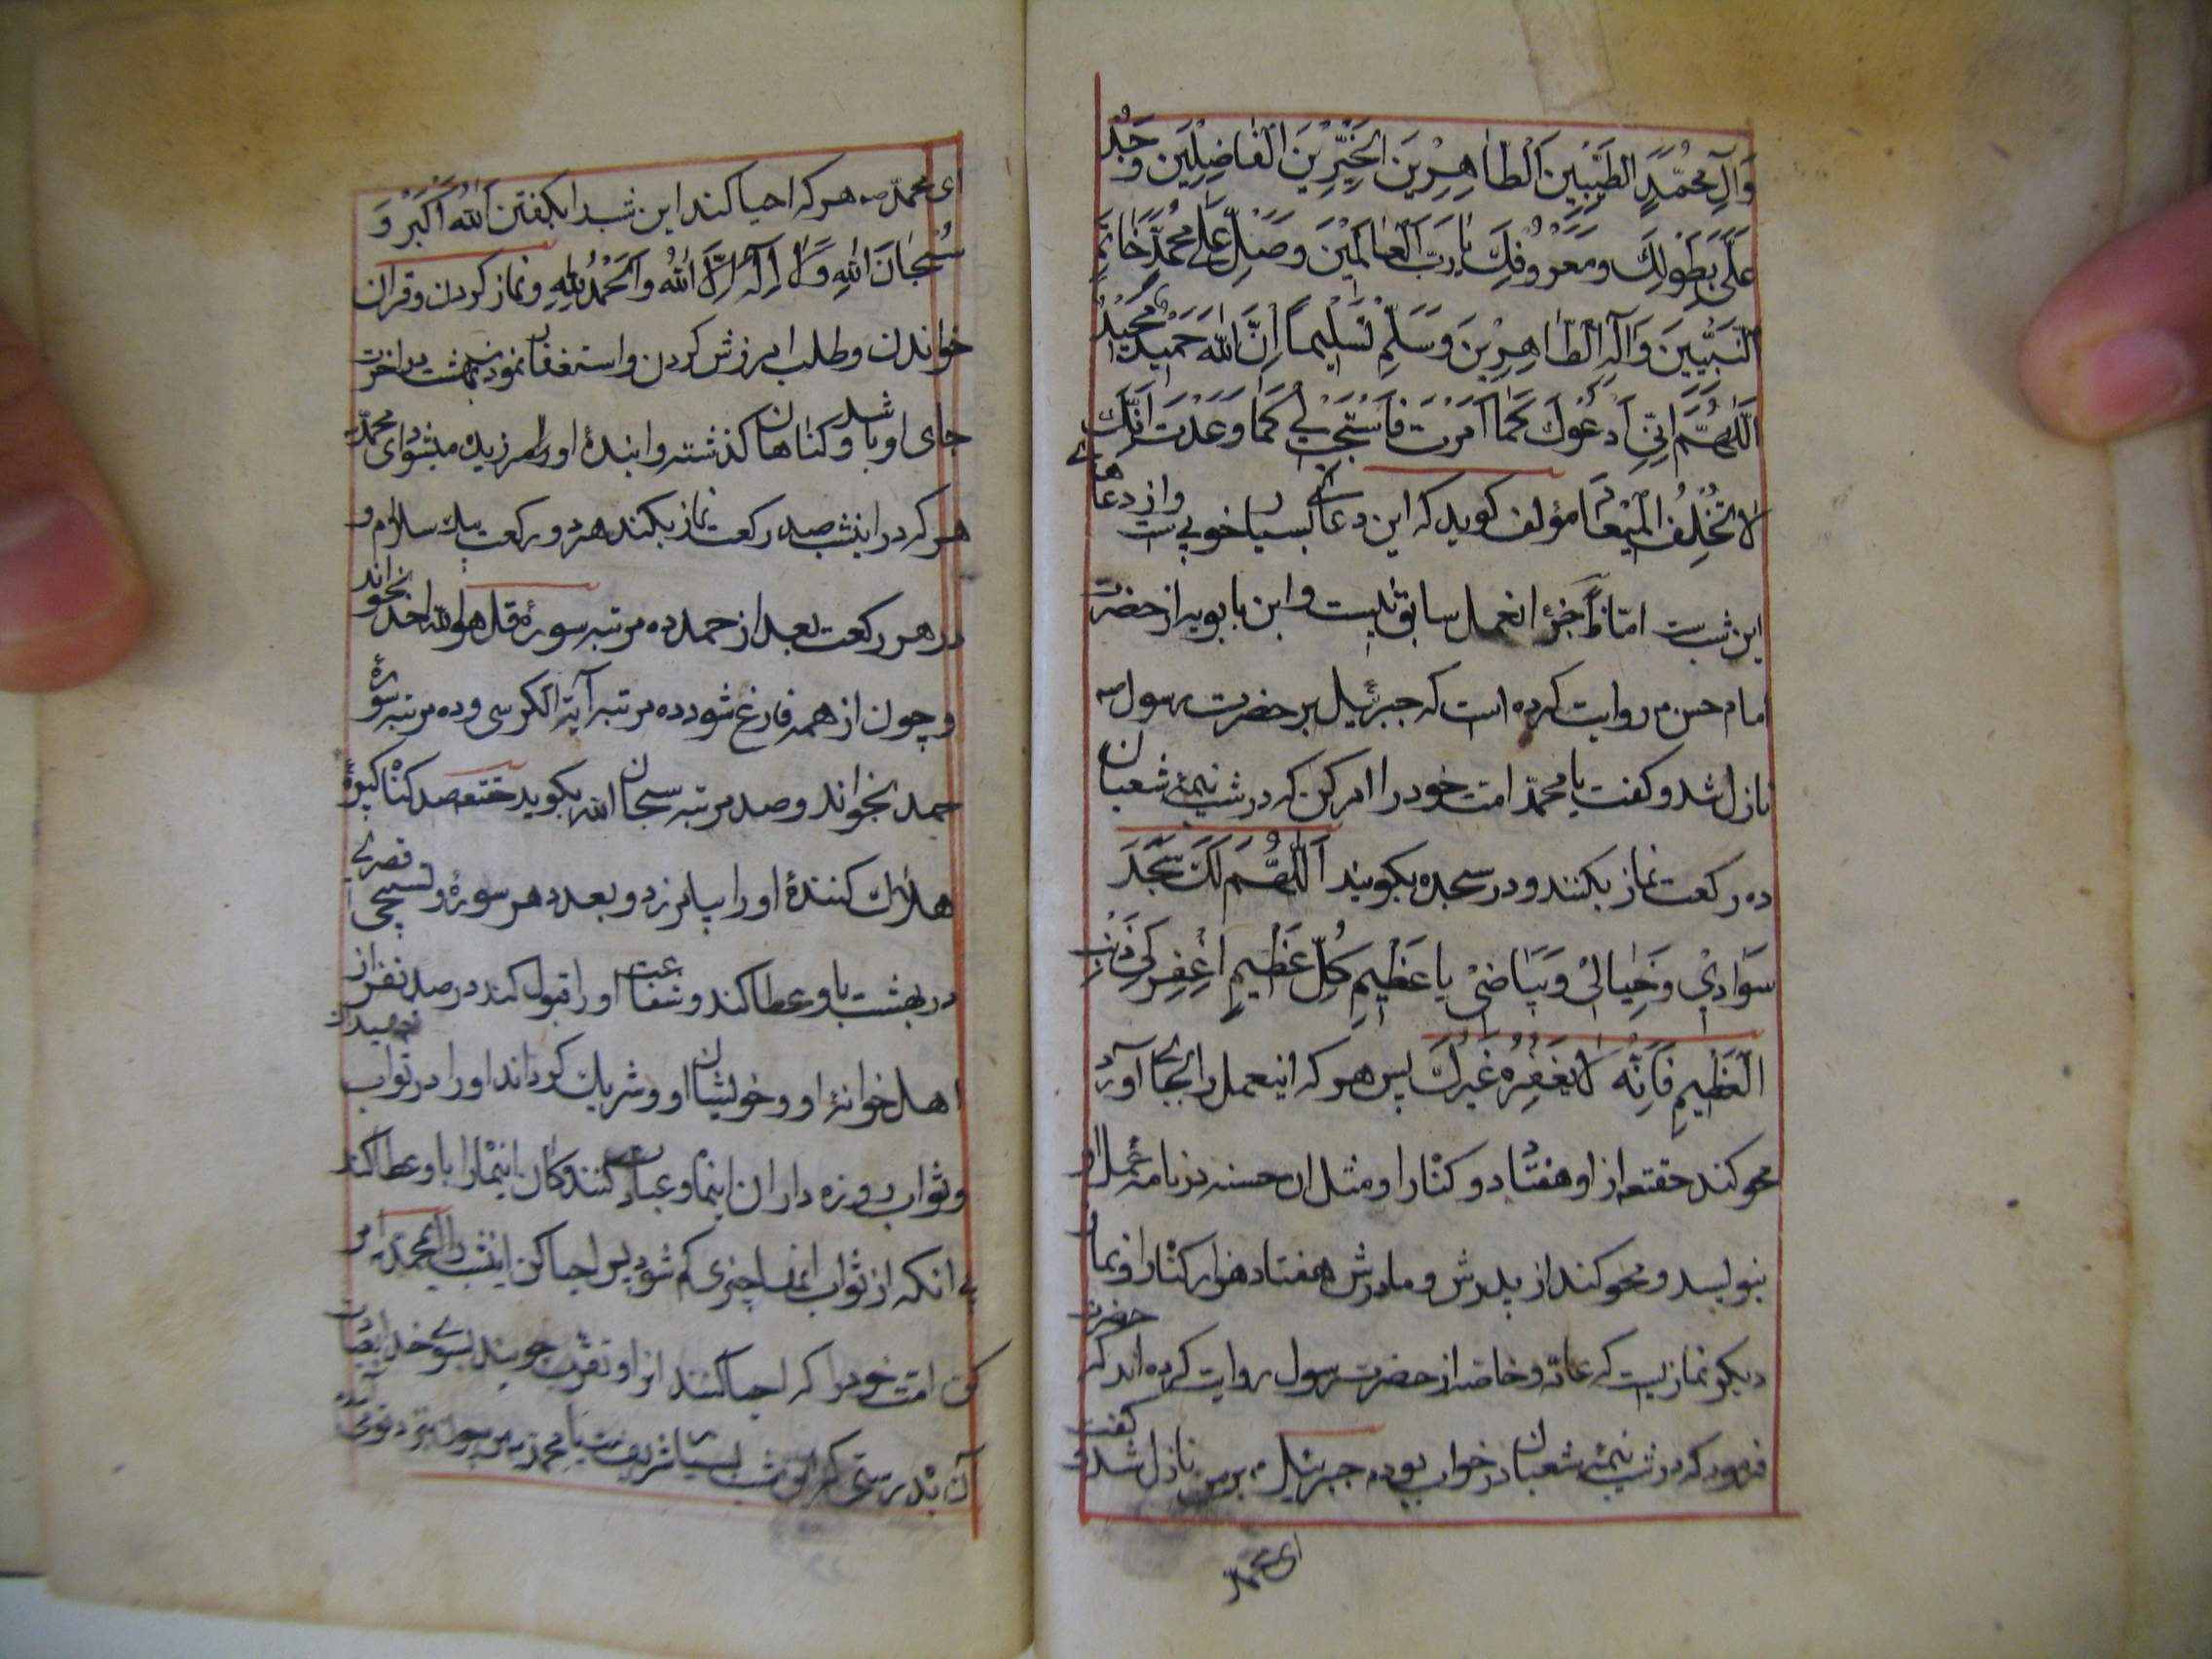 وَآلِ مُحَمَّدٍ الطَّيِّبِينَ الطَّاهِرِينَ الخَيِّرِينَ الْفَاضِلِينَ وَجُدْ
عَلَيَّ بِطَولِكَ وَمَعْرُوفِكَ يَا رَبَّ الْعَالَمِينَ وَصَلِّ عَلَى مُحَمَّدٍ خَاتَمِ
النَّبِيِّينَ وَآلِهِ الطَّاهِرِينَ وَسَلِّمْ تَسْلِيماً اِنَّ اللهَ حَمِيدٌ مَجِيدٌ
اَللّٰهُمَّ اِنِّي اَدْعُوكَ كَمَا اَمَرْتَ فَاسْتَجِبْ لِي كَمَا وَعَدْتَ اِنَّكَ
لا تُخْلِفُ الْمِيعَادَ مؤلف كويد كه اين دعائى بسيار خوبيست واز دعاهاى
اين شب است امّا ظاهرا جزؤ انعمل سابق نيست وابن بابويه از حضرت
امام حسن روايت كرده است كه جبرئيل بر حضرت رسول
نازل شد وكفت يا محمّد امت خود را امر كن كه در شب نيمهٔ شعبان
ده ركعت نماز بكنند ودر سجده بكويند اَللّٰهُمَّ لَكَ سَجَدَ
سَوَادِيْ وَخِيالِيْ وَبَيَاضِيْ يا عَظِيمَ كُلِّ عَظِيمٍ اغْفِرْ لِي ذَنْبِيَ
الْعَظِيمَ فَاِنَّهُ لا يَغْفِرُهُ غَيْرُكَ پس هر كه اينعمل را بجا آورد
محو كند حقتعه از او هفتاد دو كناه را ومثل ان حسنه در نامهٔ عمل او
بنويسد ومحو كند از پدرش ومادرش هفتاد هزار كناه را ونماز
ديكر نمازيست كه عامّه وخاصّه از حضرت رسول روايت كرده‌اند كه حضرت
فرمود كه در شب نيمهٔ شعبان در خواب بودم جبرئيل بر من نازل شد وكفت
اى محمّد
اى محمّد هر كه احيا كند اين شب را بكفتن اَللهُ اَكْبَرُ وَ
سُبْحَانَ اللهِ وَلَا اِلٰهَ اِلَّا اللهُ وَالْحَمْدُ لِلّٰهِ ونماز كردن وقران
خواندن وطلب امرزش كردن واستغفار نمودن بهشت در اخرت
جاى او باشد وكناهان كذشته وايندهٔ او امرزيده ميشود اى محمّد
هر كه در اينشب صد ركعت نماز بكند هر دو ركعت بيك سلام و
در هر ركعت بعد از حمد ده مرتبه سورهٔ قل هو الله احد بخواند
وچون از همه فارغ شود ده مرتبه آية الكرسى وده مرتبه سورهٔ
حمد بخواند وصد مرتبه سبحان الله بكويد حقتعه صد كناه كبيرهٔ
هلاك كنندهٔ او را بيامرزد وبعدد هر سورهٔ وتسبيحى قصرى
در بهشت باو عطا كند وشفاعت او را قبول كند در صد نفر از
اهل خوانهٔ او وخويشان او وشريك كرداند او را در ثواب
وثواب روزه داران اينماه وعبادت كنندكان اينماه را باو عطا كند
بى انكه از ثواب چيزى كم شود پس احيا كن اينشب را اى محمّد وامر
كن امّت خود را كه احيا كنند وتقرّب جويند بسوى خدا
بدرستى كه اين شب بسيار شريفست يا محمّد